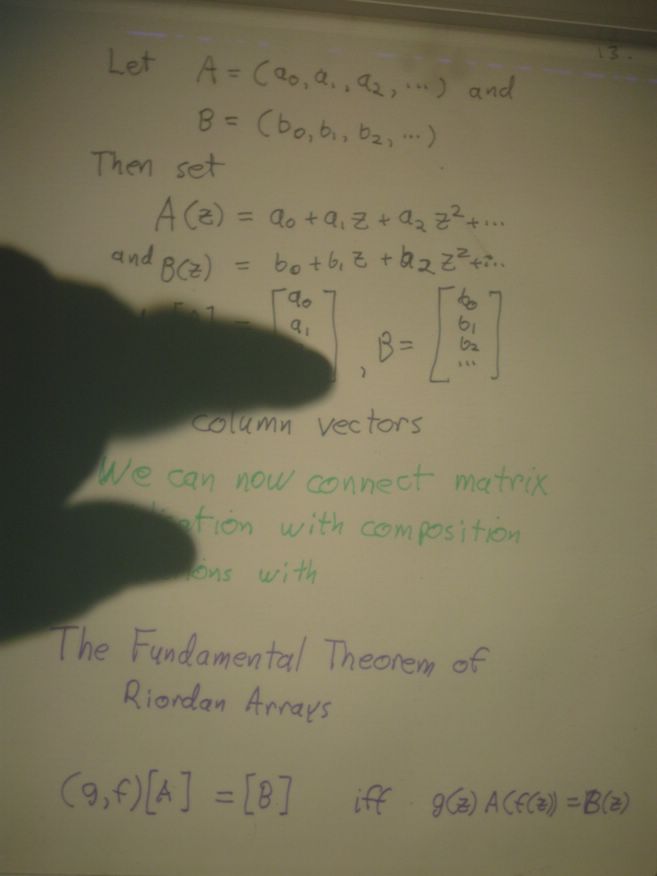 13.
Let A = (a₀, a₁, a₂, ...) and
B = (b₀, b₁, b₂, ...)
Then set
A(z) = a₀ + a₁ z + a₂ z² + ...
and B(z) = b₀ + b₁ z + b₂ z² + ...
= [a₀ a₁ ], B = [b₀ b₁ b₂ ...]
column vectors
We can now connect matrix
with composition
with
The Fundamental Theorem of
Riordan Arrays
(g,f)[A] = [B] iff g(z) A(f(z)) = B(z)